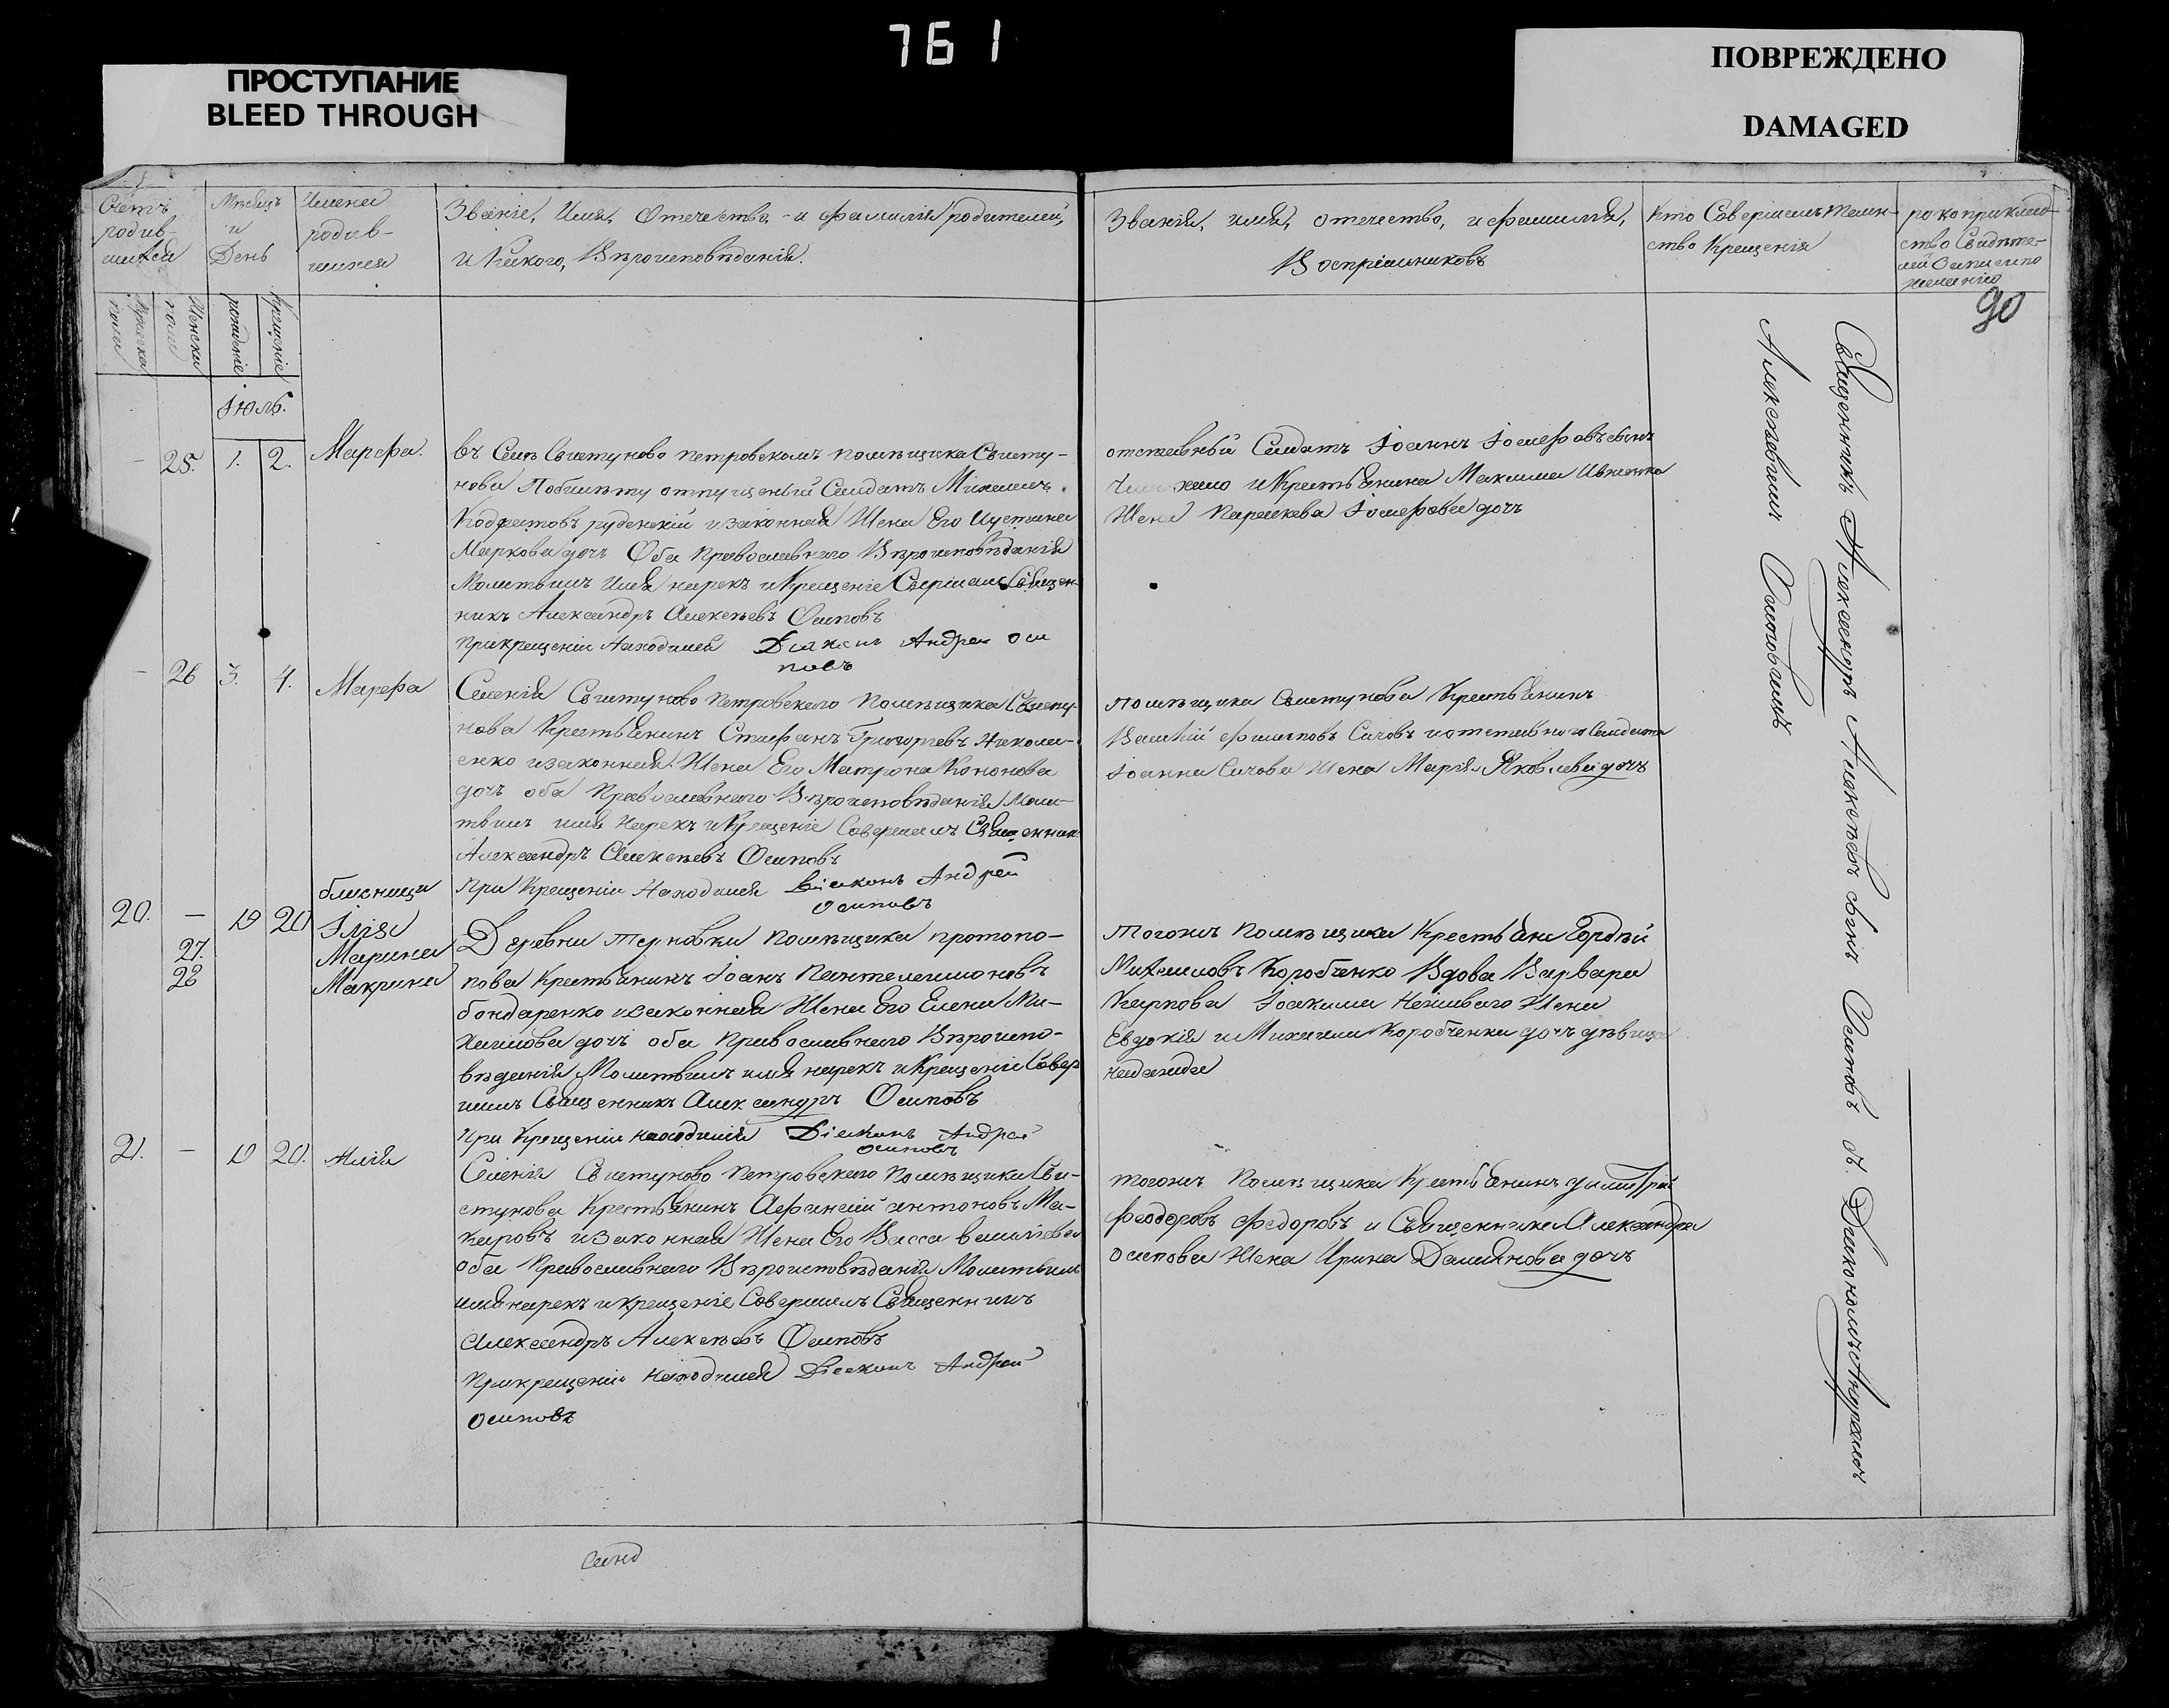 761
ПРОСТУПАНИЕ
BLEED THROUGH
ПОВРЕЖДЕНО
DAMAGED
Счетъ
родив-
шихся
Мѣсяцъ
и
День
Имена
родив-
шихся
Званіе, Имя, Отечество, и фамилія родителей,
и Какого, Вѣроисповѣданія.
Званія, имя, отечество, и фамилія,
Воспріемниковъ
Кто Совершалъ таин-
ство Крещенія
рукоприклад-
ство Свидѣте-
лей Записи по
желанію
90
Мужеска
пола
Женска
пола
рожденіе
Крещеніе
Іюль.
25. 1. 2. Марѳа.
въ Селѣ Свистуново Петровскомъ помѣщика Свисту-
нова По билету отпущеный Салдатъ Михаилъ
и законная Жена Его Иустина
Маркова дочь Оба Православнаго Вѣроисповѣданія
Молитвилъ имя нарекъ и Крещеніе Свершалъ Священ-
никъ Александръ Алексѣевъ Осиповъ
При крещеніи Находился Діаконъ Андрей Оси
повъ
отставный Салдатъ Іоаннъ Іосифовъ сынъ
и Крестьянина Максима Ивченка
Жена Параскева Іосифова дочь
26 3. 4. Марѳа
Селенія Свистуново Петровскаго Помѣщика Свисту-
нова Крестьянинъ Стефанъ Григорьевъ Никола-
енко и законная Жена Его Матрона Кононова
дочь оба Православнаго Вѣроисповѣданія Моли-
твилъ имя Нарекъ и Крещеніе Совершалъ Священник
Александръ Алексѣевъ Осиповъ
При Крещеніи Находился Діаконъ Андрей
Осиповъ
помѣщика Свистунова Крестьянинъ
Василій Филиповъ Сичовъ и отставного Салдата
Іоанна Сичова Жена Марія Яковлева дочь
близнеци
20. — 19 20 Іліа
27. Марина
28 Макрина
Деревни Терновки Помѣщика протопо-
пова Крестьянинъ Іоанъ Пантелеимоновъ
бондаренко и законная Жена Его Елена Ми-
хаилова дочь оба Православнаго Вѣроиспо-
вѣданія Молитвилъ имя нарекъ и Крещеніе Совер
шилъ Священникъ Александръ Осиповъ
При Крещеніи находился Діаконъ Андрей
Осиповъ
тогожъ Помѣщика Крестьяне Гордѣй
Михаиловъ Коробченко Вдова Варвара
Карпова Іоакима Жена
Евдокія и Михаила Коробченка дочь дѣвица
21. — 19 20. Илія
Селенія Свистуново Петровскаго Помѣщика Сви-
стунова Крестьянинъ Аѳанасій антоновъ Ма-
каровъ и законная Жена Его Васса васильева
оба Православнаго Вѣроисповѣданія Молитвилъ
имя нарекъ и крещеніе Совершилъ Священникъ
Александръ Алексѣевъ Осиповъ
При крещеніи находился Діаконъ Андрей
Осиповъ
тогожъ Помѣщика Крестьянинъ димитрій
феодоровъ Федоровъ и Священника Александра
осипова Жена Ирина Даміянова дочь
Священникъ Александръ Алексѣевъ сынъ Осиповъ съ Діакономъ Андреемъ
Алексѣевымъ Осиповымъ